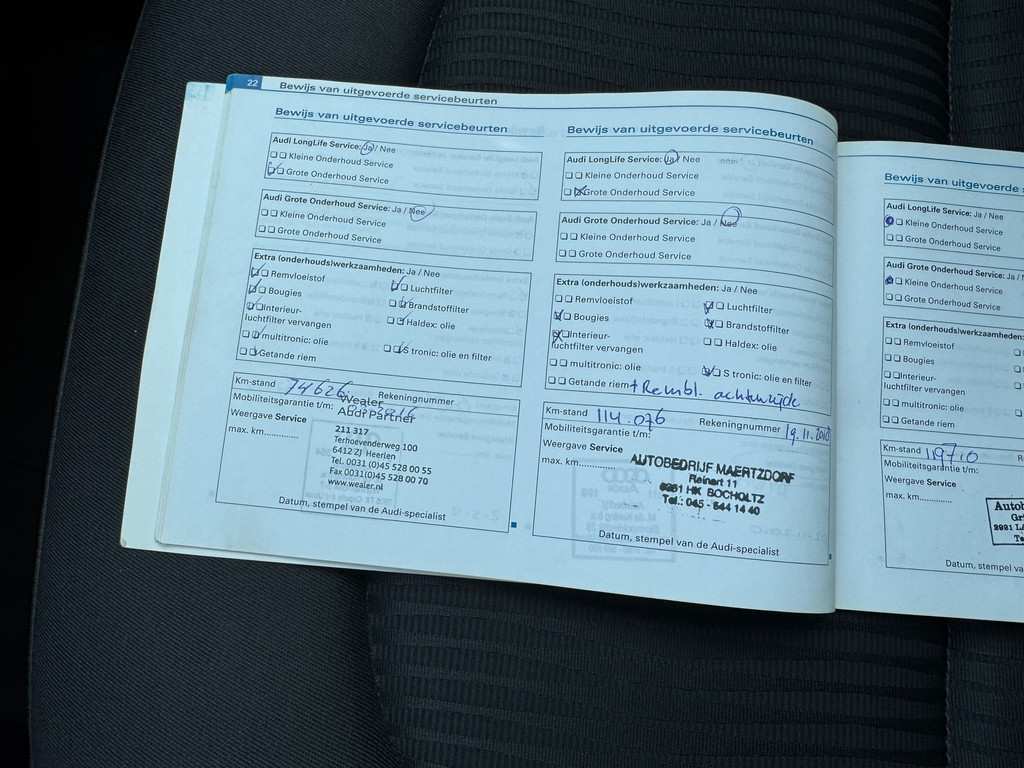 22 Bewijs van uitgevoerde servicebeurten
Bewijs van uitgevoerde servicebeurten
Audi LongLife Service: Ja / Nee
Kleine Onderhoud Service
Grote Onderhoud Service
Audi Grote Onderhoud Service: Ja / Nee
Kleine Onderhoud Service
Grote Onderhoud Service
Extra (onderhouds)werkzaamheden: Ja / Nee
Remvloeistof
Luchtfilter
Bougies
Brandstoffilter
Interieur-
luchtfilter vervangen
Haldex: olie
multitronic: olie
S tronic: olie en filter
Getande riem
Km-stand 74626 Rekeningnummer
Mobiliteitsgarantie t/m:
Weergave Service
max. km.............
Wealer
Audi Partner
211 317
Terhoevenderweg 100
6412 ZJ Heerlen
Tel. 0031 (0)45 528 00 55
Fax 0031(0)45 528 00 70
www.wealer.nl
Datum, stempel van de Audi-specialist
Bewijs van uitgevoerde servicebeurten
Audi LongLife Service: Ja / Nee
Kleine Onderhoud Service
Grote Onderhoud Service
Audi Grote Onderhoud Service: Ja / Nee
Kleine Onderhoud Service
Grote Onderhoud Service
Extra (onderhouds)werkzaamheden: Ja / Nee
Remvloeistof
Luchtfilter
Bougies
Brandstoffilter
Interieur-
luchtfilter vervangen
Haldex: olie
multitronic: olie
S tronic: olie en filter
Getande riem + Rembl. achterzijde
Km-stand 114.076 Rekeningnummer 19.11.2018
Mobiliteitsgarantie t/m:
Weergave Service
max. km.............
AUTOBEDRIJF MAERTZDORF
Reinart 11
6351 HK BOCHOLTZ
Tel.: 045 - 544 14 40
Datum, stempel van de Audi-specialist
Bewijs van uitgevoerde s
Audi LongLife Service: Ja / Nee
Kleine Onderhoud Service
Grote Onderhoud Service
Audi Grote Onderhoud Service: Ja /
Kleine Onderhoud Service
Grote Onderhoud Service
Extra (onderhouds)werkzaamheden:
Remvloeistof
Bougies
Interieur-
luchtfilter vervangen
multitronic: olie
Getande riem
Km-stand 119710 R
Mobiliteitsgarantie t/m:
Weergave Service
max. km.............
Autob
Gr
2921 LA
Te
Datum, stempel va